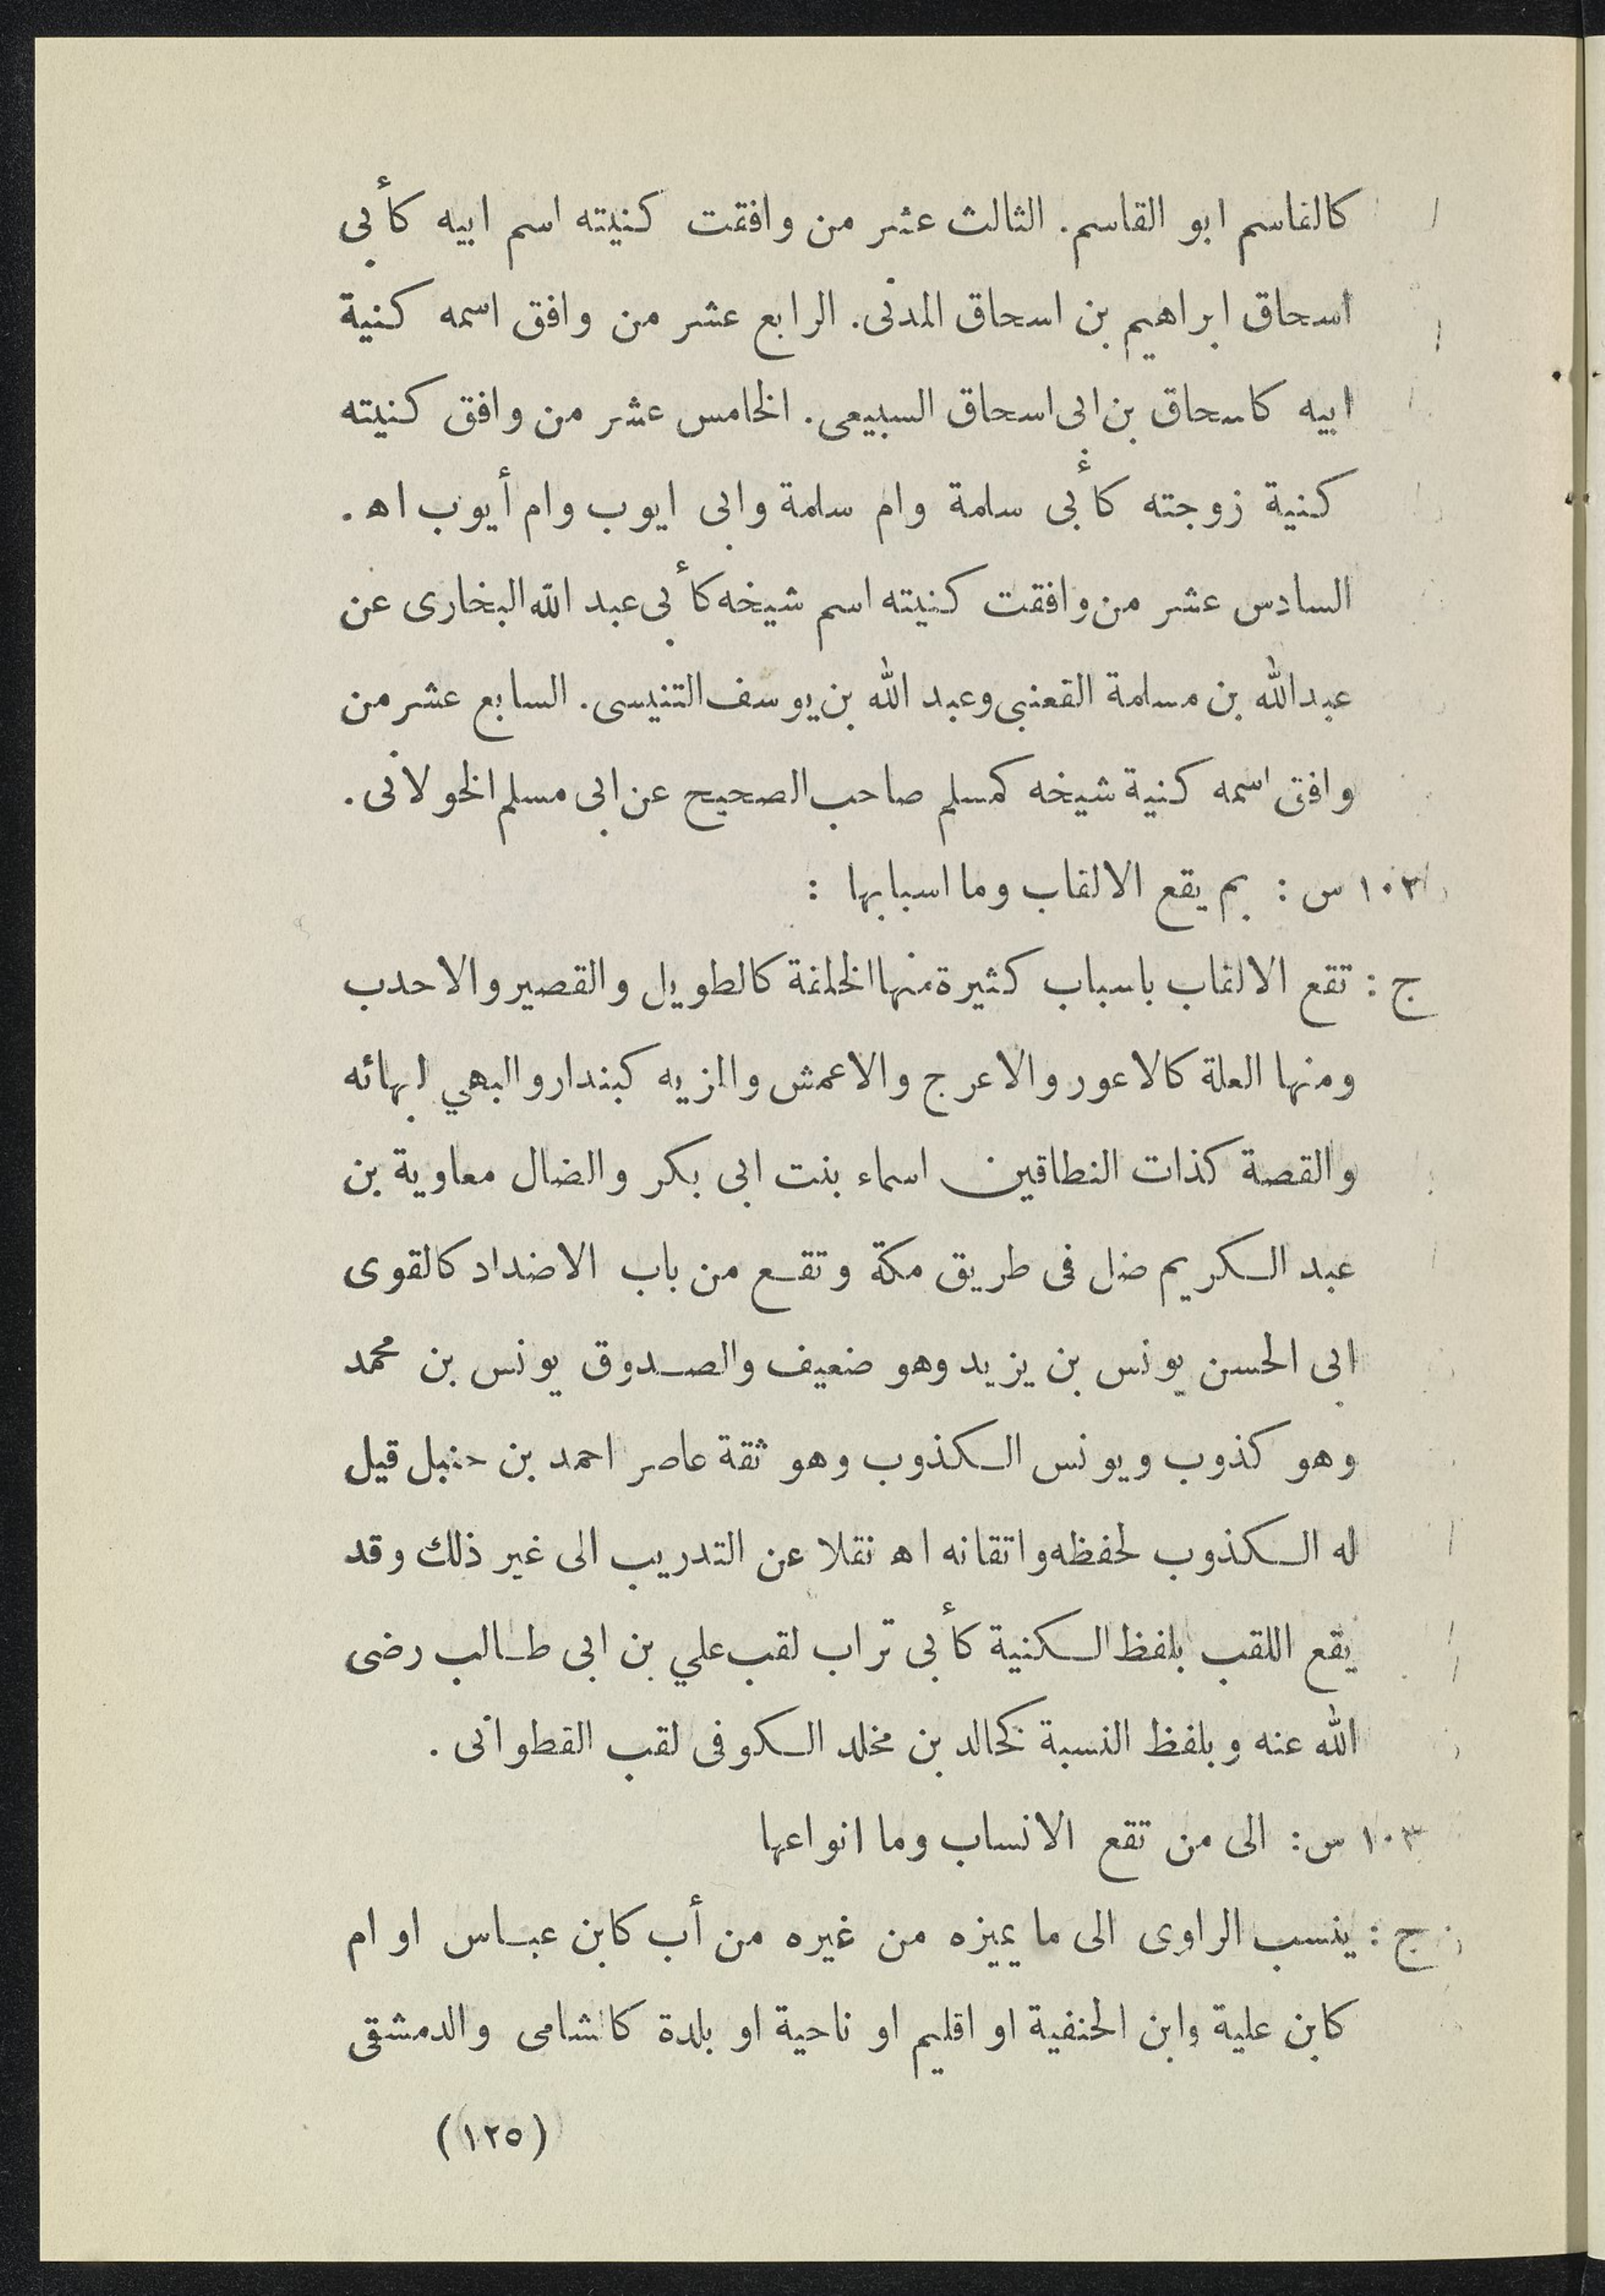 كالقاسم ابو القاسم. الثالث عشر من وافقت كنيته اسم ابيه كأبى
اسحاق ابراهيم بن اسحاق المدنى. الرابع عشر من وافق اسمه كنية
ابيه كاسحاق بن ابى اسحاق السبيعى. الخامس عشر من وافق كنيته
كنية زوجته كأبى سلمة وام سلمة وابى ايوب وام أيوب اه.
السادس عشر من وافقت كنيته اسم شيخه كأبى عبد الله البخارى عن
عبدالله بن مسلمة القعنبى وعبد الله بن يوسف التنيسى. السابع عشر من
وافق اسمه كنية شيخه كمسلم صاحب الصحيح عن ابى مسلم الخولانى.
١٠٢ س : بم يقع الالقاب وما اسبابها :
ج : تقع الالقاب باسباب كثيرة منها الخلقة كالطويل والقصير والاحدب
ومنها العلة كالاعور والاعرج والاعمش والمزيه كبندار والبهي لبهائه
والقصة كذات النطاقين اسماء بنت ابى بكر والضال معاوية بن
عبد الكريم ضل فى طريق مكة وتقع من باب الاضداد كالقوى
ابى الحسن يونس بن يزيد وهو ضعيف والصدوق يونس بن محمد
وهو كذوب ويونس الكذوب وهو ثقة عاصر احمد بن حنبل قيل
له الكذوب لحفظه واتقانه اه نقلا عن التدريب الى غير ذلك وقد
يقع اللقب بلفظ الكنية كأبى تراب لقب علي بن ابى طالب رضى
الله عنه وبلفظ النسبة كخالد بن مخلد الكوفى لقب القطوانى.
١٠٣ س: الى من تقع الانساب وما انواعها
ج : ينسب الراوى الى ما يميزه من غيره من أب كابن عباس او ام
كابن علية وابن الحنفية او اقليم او ناحية او بلدة كالشامى والدمشقى
(١٢٥)